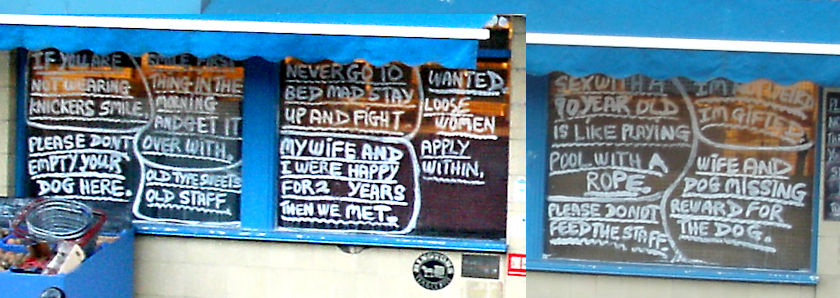 IF YOU ARE
NOT WEARING
KNICKERS SMILE
PLEASE DONT
EMPTY YOUR
DOG HERE.
SMILE FIRST
THING IN THE
MORNING
AND GET IT
OVER WITH.
OLD TYPE SWEETS
OLD STAFF
NEVER GO TO
BED MAD STAY
UP AND FIGHT
MY WIFE AND
I WERE HAPPY
FOR 2 YEARS
THEN WE MET.
WANTED
LOOSE
WOMEN
APPLY
WITHIN.
SEX WITH A
90 YEAR OLD
IS LIKE PLAYING
POOL WITH A
ROPE.
PLEASE DO NOT
FEED THE STAFF
I'M
I'M GIFTED.
WIFE AND
DOG MISSING
REWARD FOR
THE DOG.